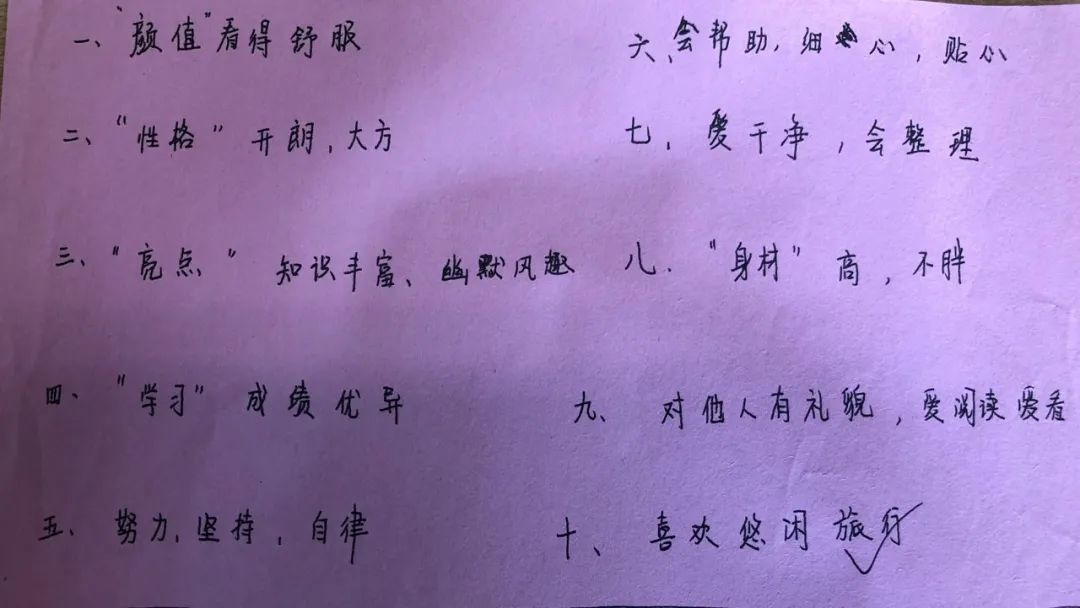 一、"颜值"看得舒服
二、"性格"开朗,大方
三、"亮点"知识丰富、幽默风趣
四、"学习"成绩优异
五、努力,坚持,自律
六、会帮助,细心,贴心
七、爱干净,会整理
八、"身材"高,不胖
九、对他人有礼貌,爱阅读爱看
十、喜欢悠闲旅行